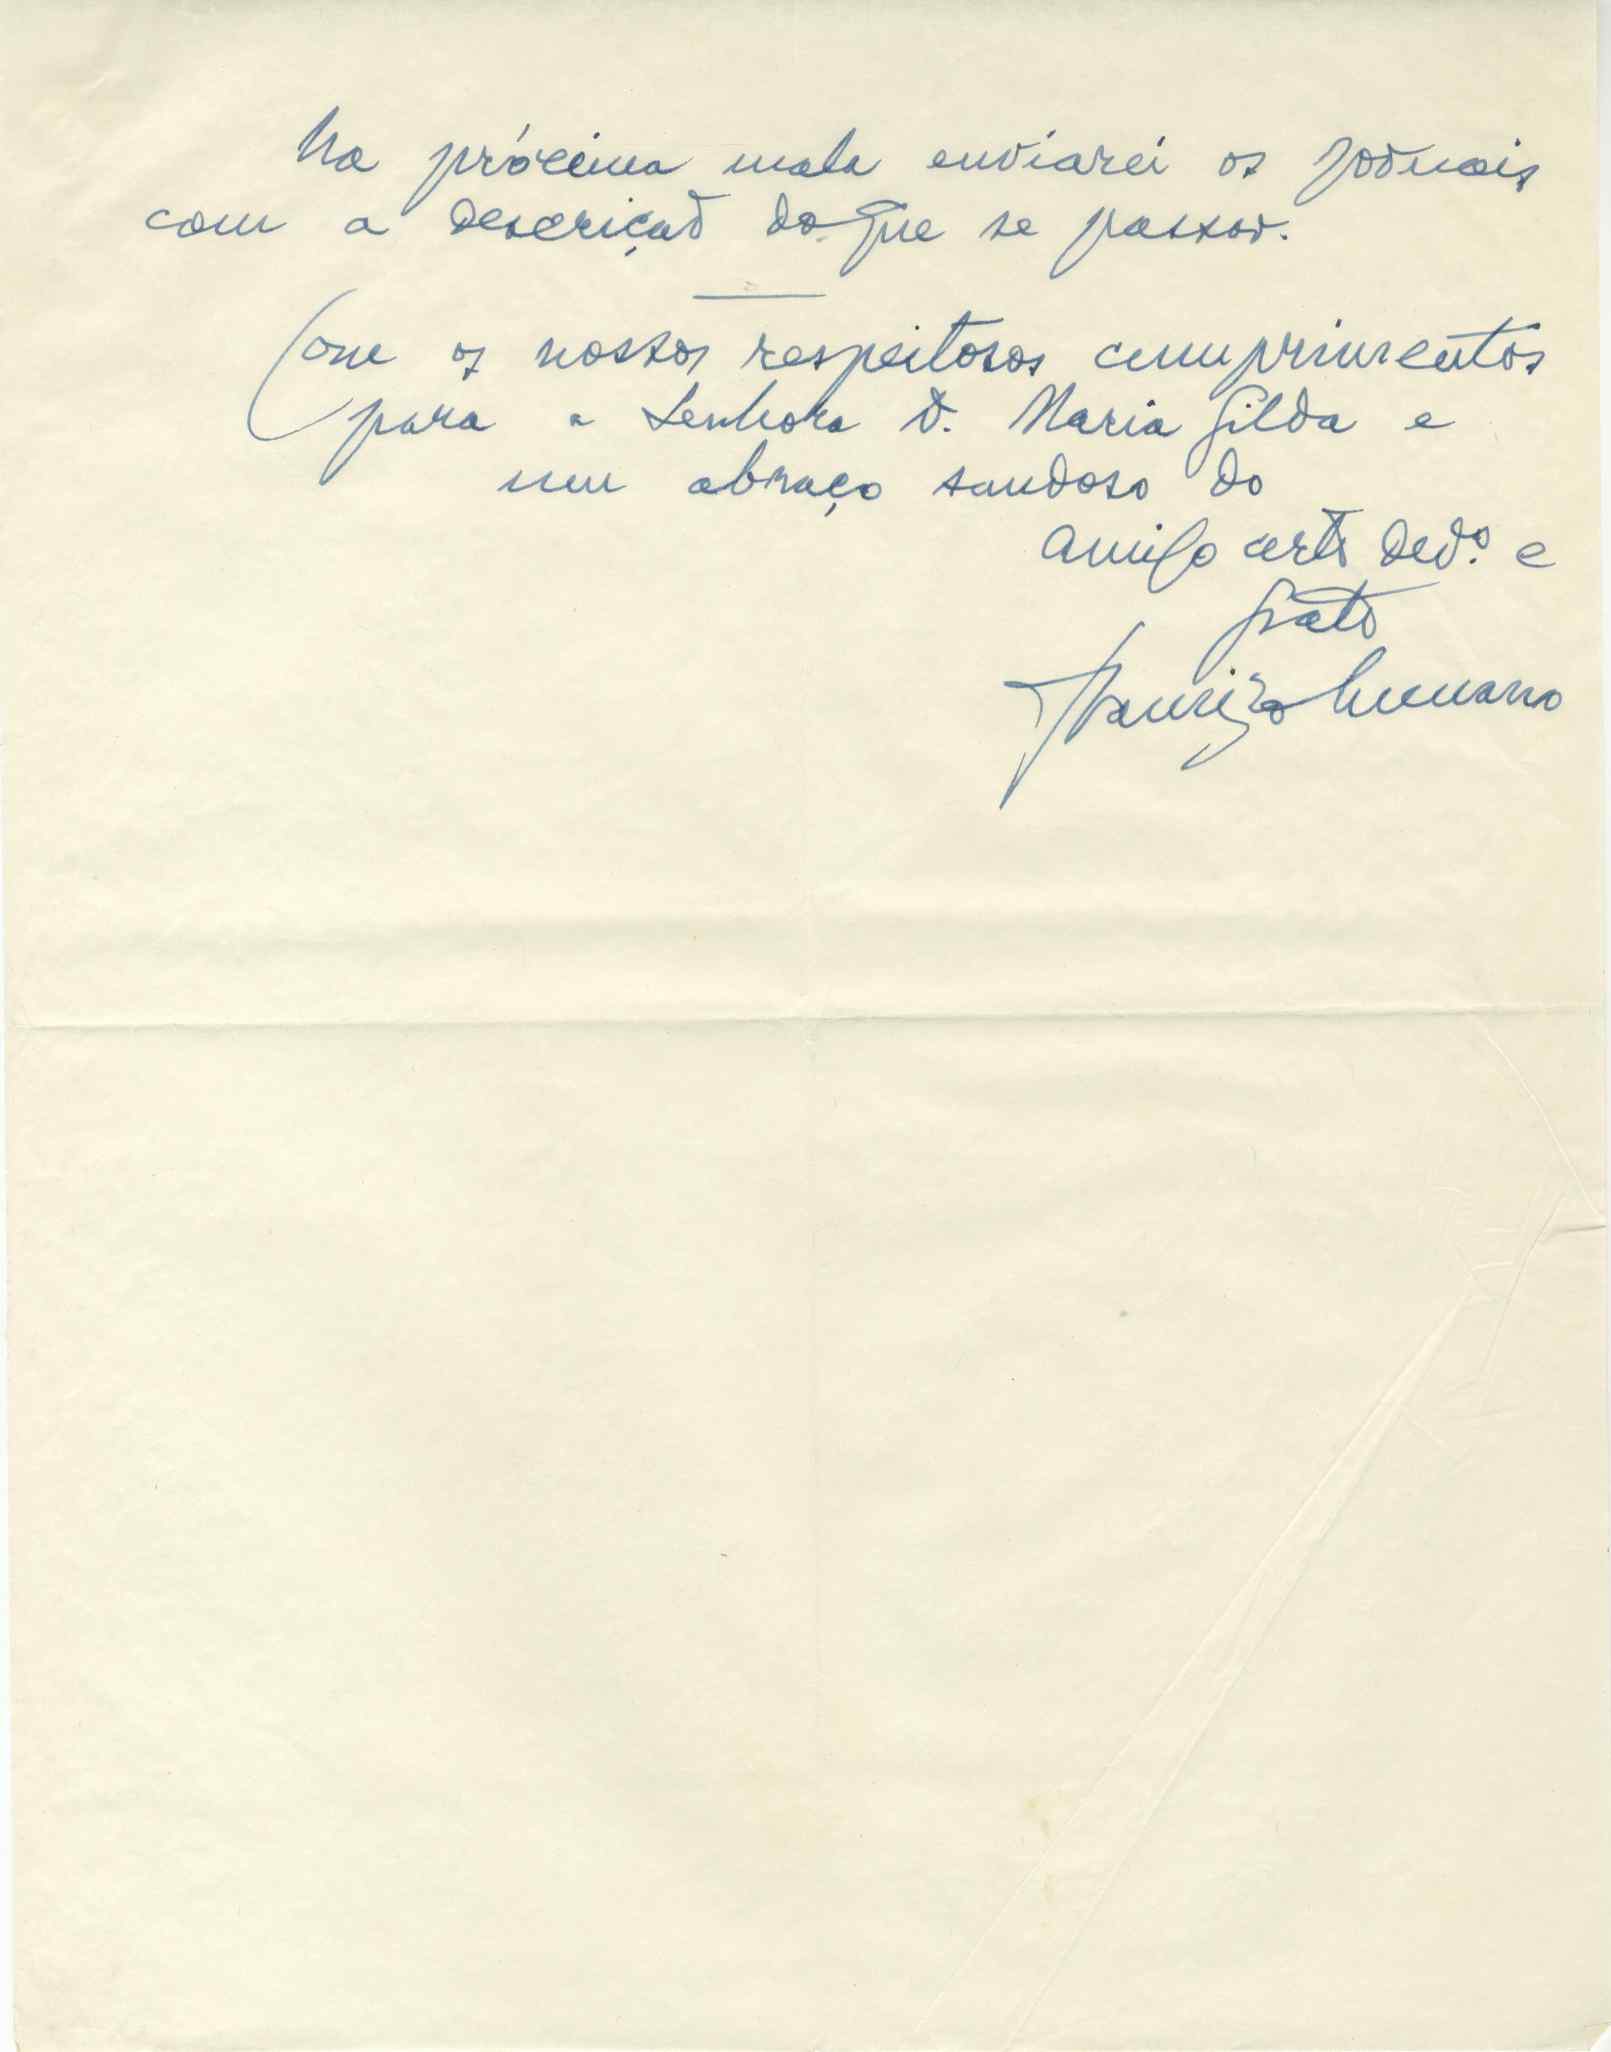 Na próxima mala enviarei os jornais
com a descrição do que se passou.
Com os nossos respeitosos cumprimentos
para a Senhora D. Maria Gilda e
um abraço saudoso do
amigo certo dedº. e
grato